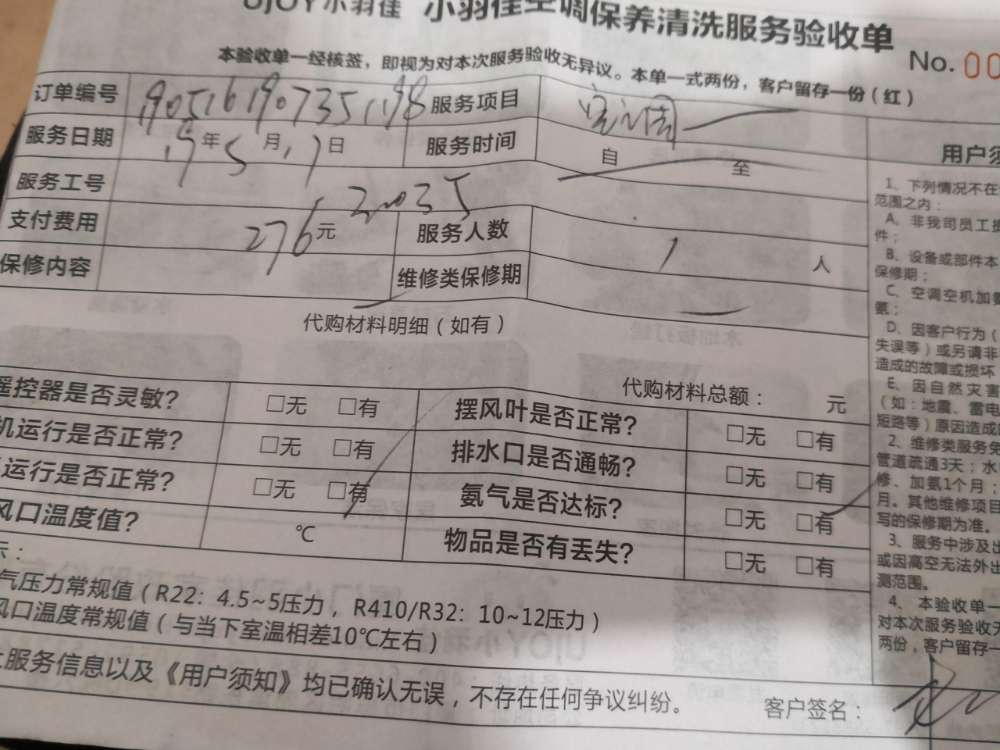 UJOY小羽佳 小羽佳空调保养清洗服务验收单
No. 00
本验收单一经核签，即视为对本次服务验收无异议。本单一式两份，客户留存一份（红）
订单编号 190516190735198 服务项目
服务日期 19年5月17日 服务时间 自 至
服务工号 2035
支付费用 276元 服务人数 1 人
保修内容 维修类保修期
代购材料明细（如有）
代购材料总额： 元
遥控器是否灵敏？ □无 □有 摆风叶是否正常？ □无 □有
机运行是否正常？ □无 □有 排水口是否通畅？ □无 □有
运行是否正常？ □无 □有 氨气是否达标？ □无 □有
风口温度值？ ℃ 物品是否有丢失？ □无 □有
示：
气压力常规值（R22：4.5~5压力，R410/R32：10~12压力）
风口温度常规值（与当下室温相差10℃左右）
上服务信息以及《用户须知》均已确认无误，不存在任何争议纠纷。
客户签名：
用户须
1、下列情况不在
范围之内：
A、非我司员工损
件；
B、设备或部件本
保修期；
C、空调空机加氨
氨；
D、因客户行为（
失误等）或另请非
造成的故障或损坏
E、因自然灾害
（如：地震、雷电
短路等）原因造成
2、维修类服务免
管道疏通3天；水
修、加氨1个月；
月。其他维修项目
写的保修期为准。
3、服务中涉及出
或因高空无法外出
测范围。
4、本验收单一
对本次服务验收无
两份，客户留存一